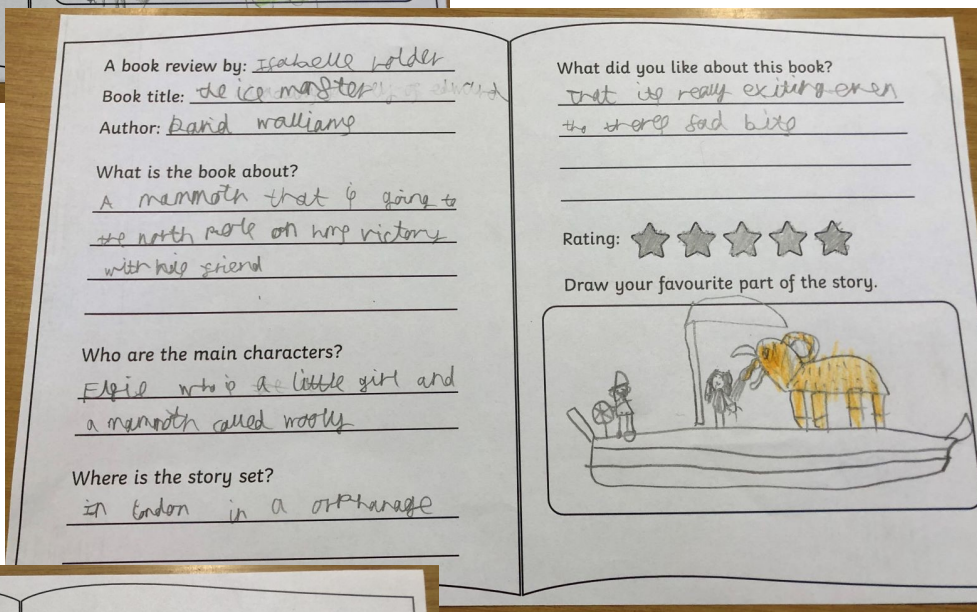 A book review by: Isabelle holder
Book title: the ice monster
Author: David walliams
What is the book about?
A mammoth that is going to
the north pole on hms victory
with his friend
Who are the main characters?
Elsie who is a little girl and
a mammoth called wooly
Where is the story set?
In London in a orphanage
What did you like about this book?
that its really exiting even
tho theres sad bits
Rating:
Draw your favourite part of the story.